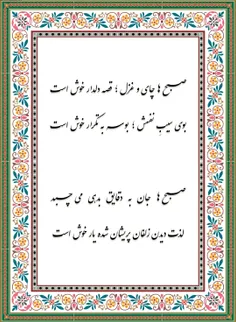 صبح ها چای و غزل ؛ قصه دلدار خوش است
بوی سیب نفسش ؛ بوسه به تکرار خوش است
صبح ها جان به دقایق بدی می چسبد
لذت دیدن زلفان پریشان شده یار خوش است